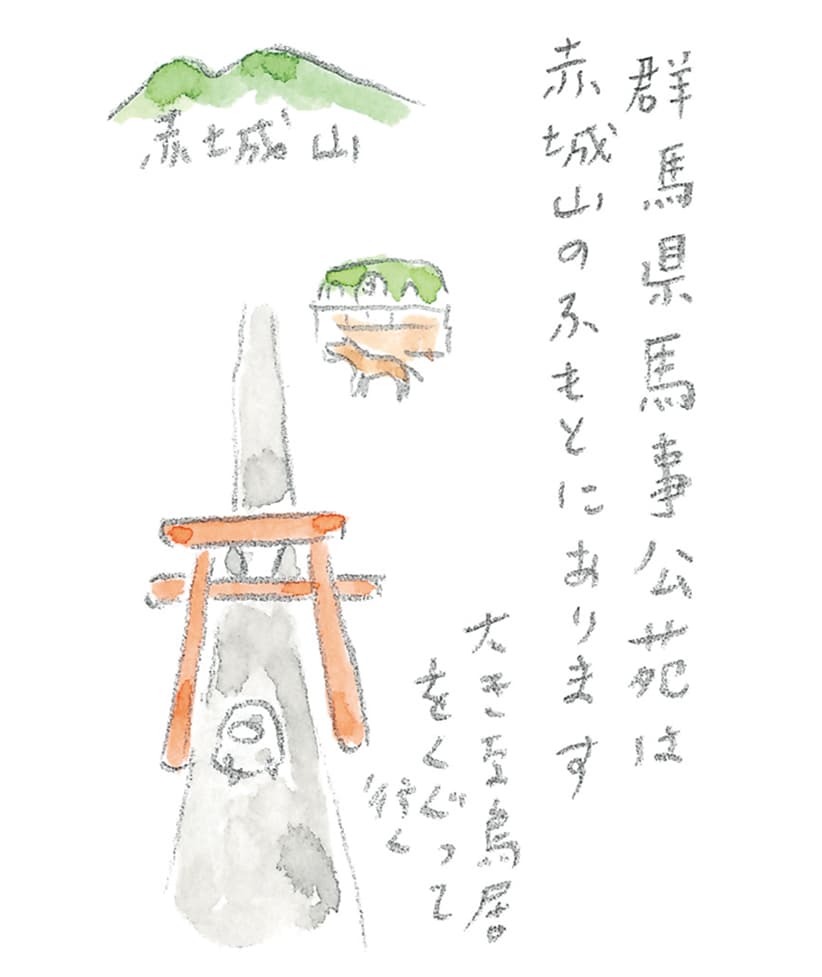 群馬県馬事公苑は
赤城山のふもとにあります
赤城山
大き至鳥居
をくぐって
行く